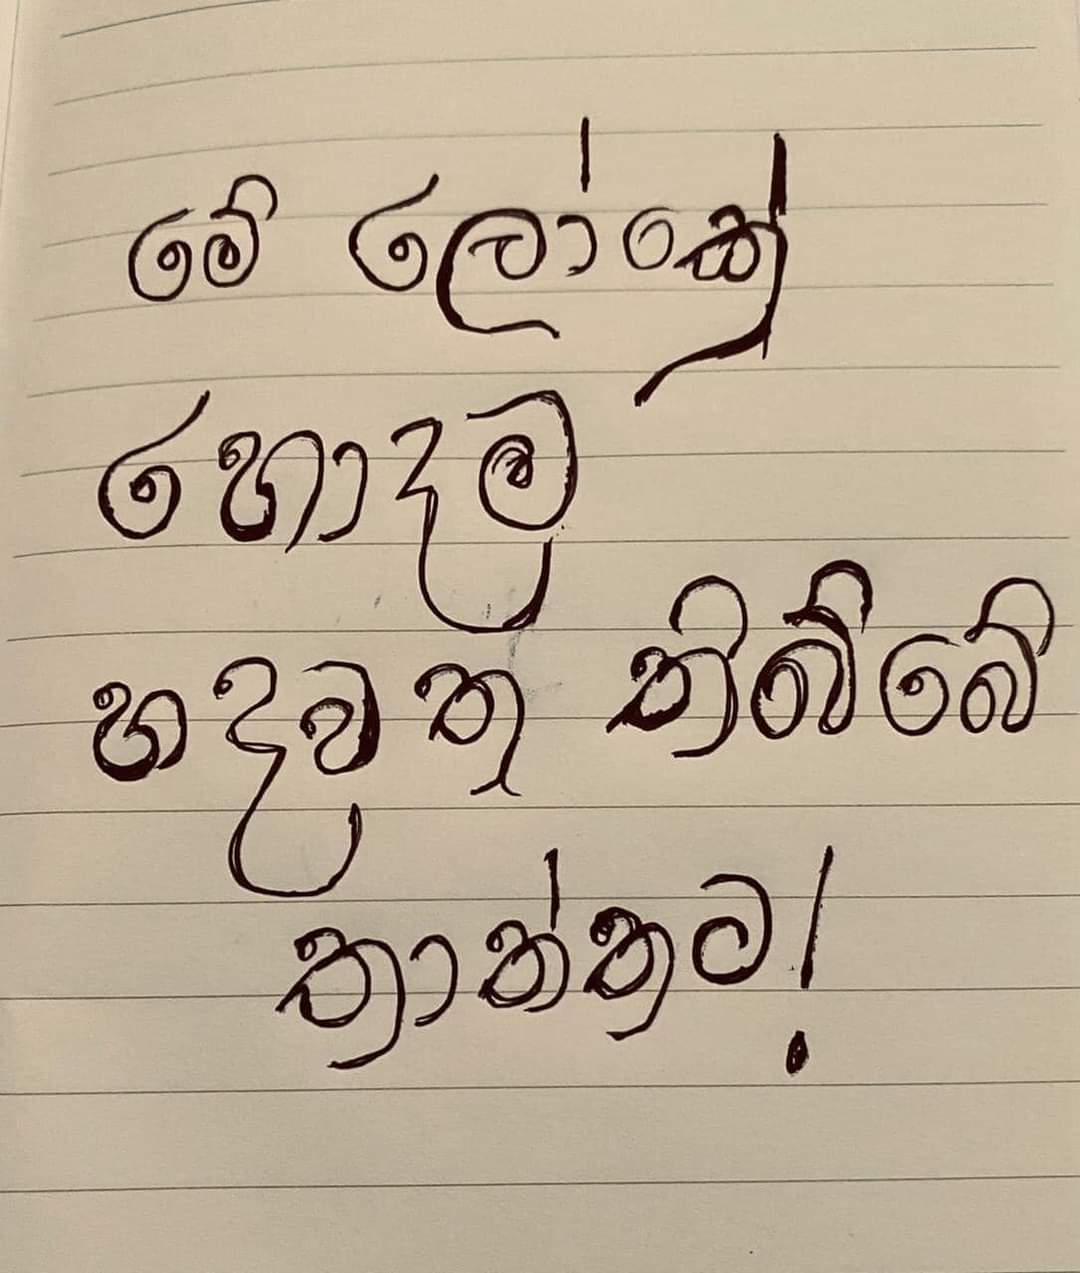 මේ ලෝකේ
හොදම
හදවත තිබ්බේ
තාත්තට!